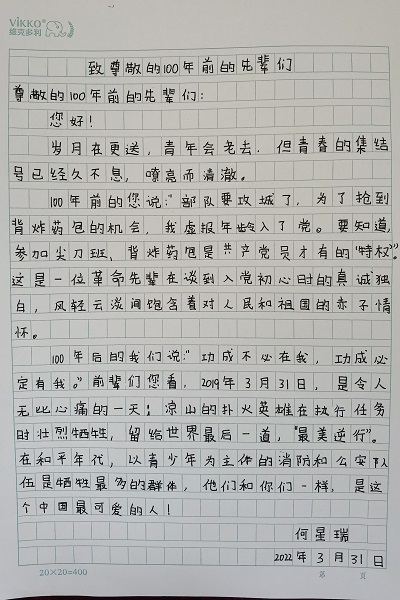 VIKKO®
维克多利
致尊敬的100年前的先辈们
尊敬的100年前的先辈们：
您好！
岁月在更迭，青年会老去，但青春的集结
号已经久不息，嘹亮而清澈。
100年前的您说：“部队要攻城了，为了抢到
背炸药包的机会，我虚报年龄入了党。要知道，
参加尖刀班、背炸药包是共产党员才有的“特权”。
这是一位革命先辈在谈到入党初心时的真诚独
白，风轻云淡间饱含着对人民和祖国的赤子情
怀。
100年后的我们说：“功成不必在我，功成必
定有我。”前辈们您看，2019年3月31日，是令人
无比心痛的一天！凉山的扑火英雄在执行任务
时壮烈牺牲，留给世界最后一道，“最美逆行”。
在和平年代，以青少年为主体的消防和公安队
伍是牺牲最多的群体，他们和你们一样，是这
个中国最可爱的人！
何星瑞
2022年3月31日
20×20=400 第 页